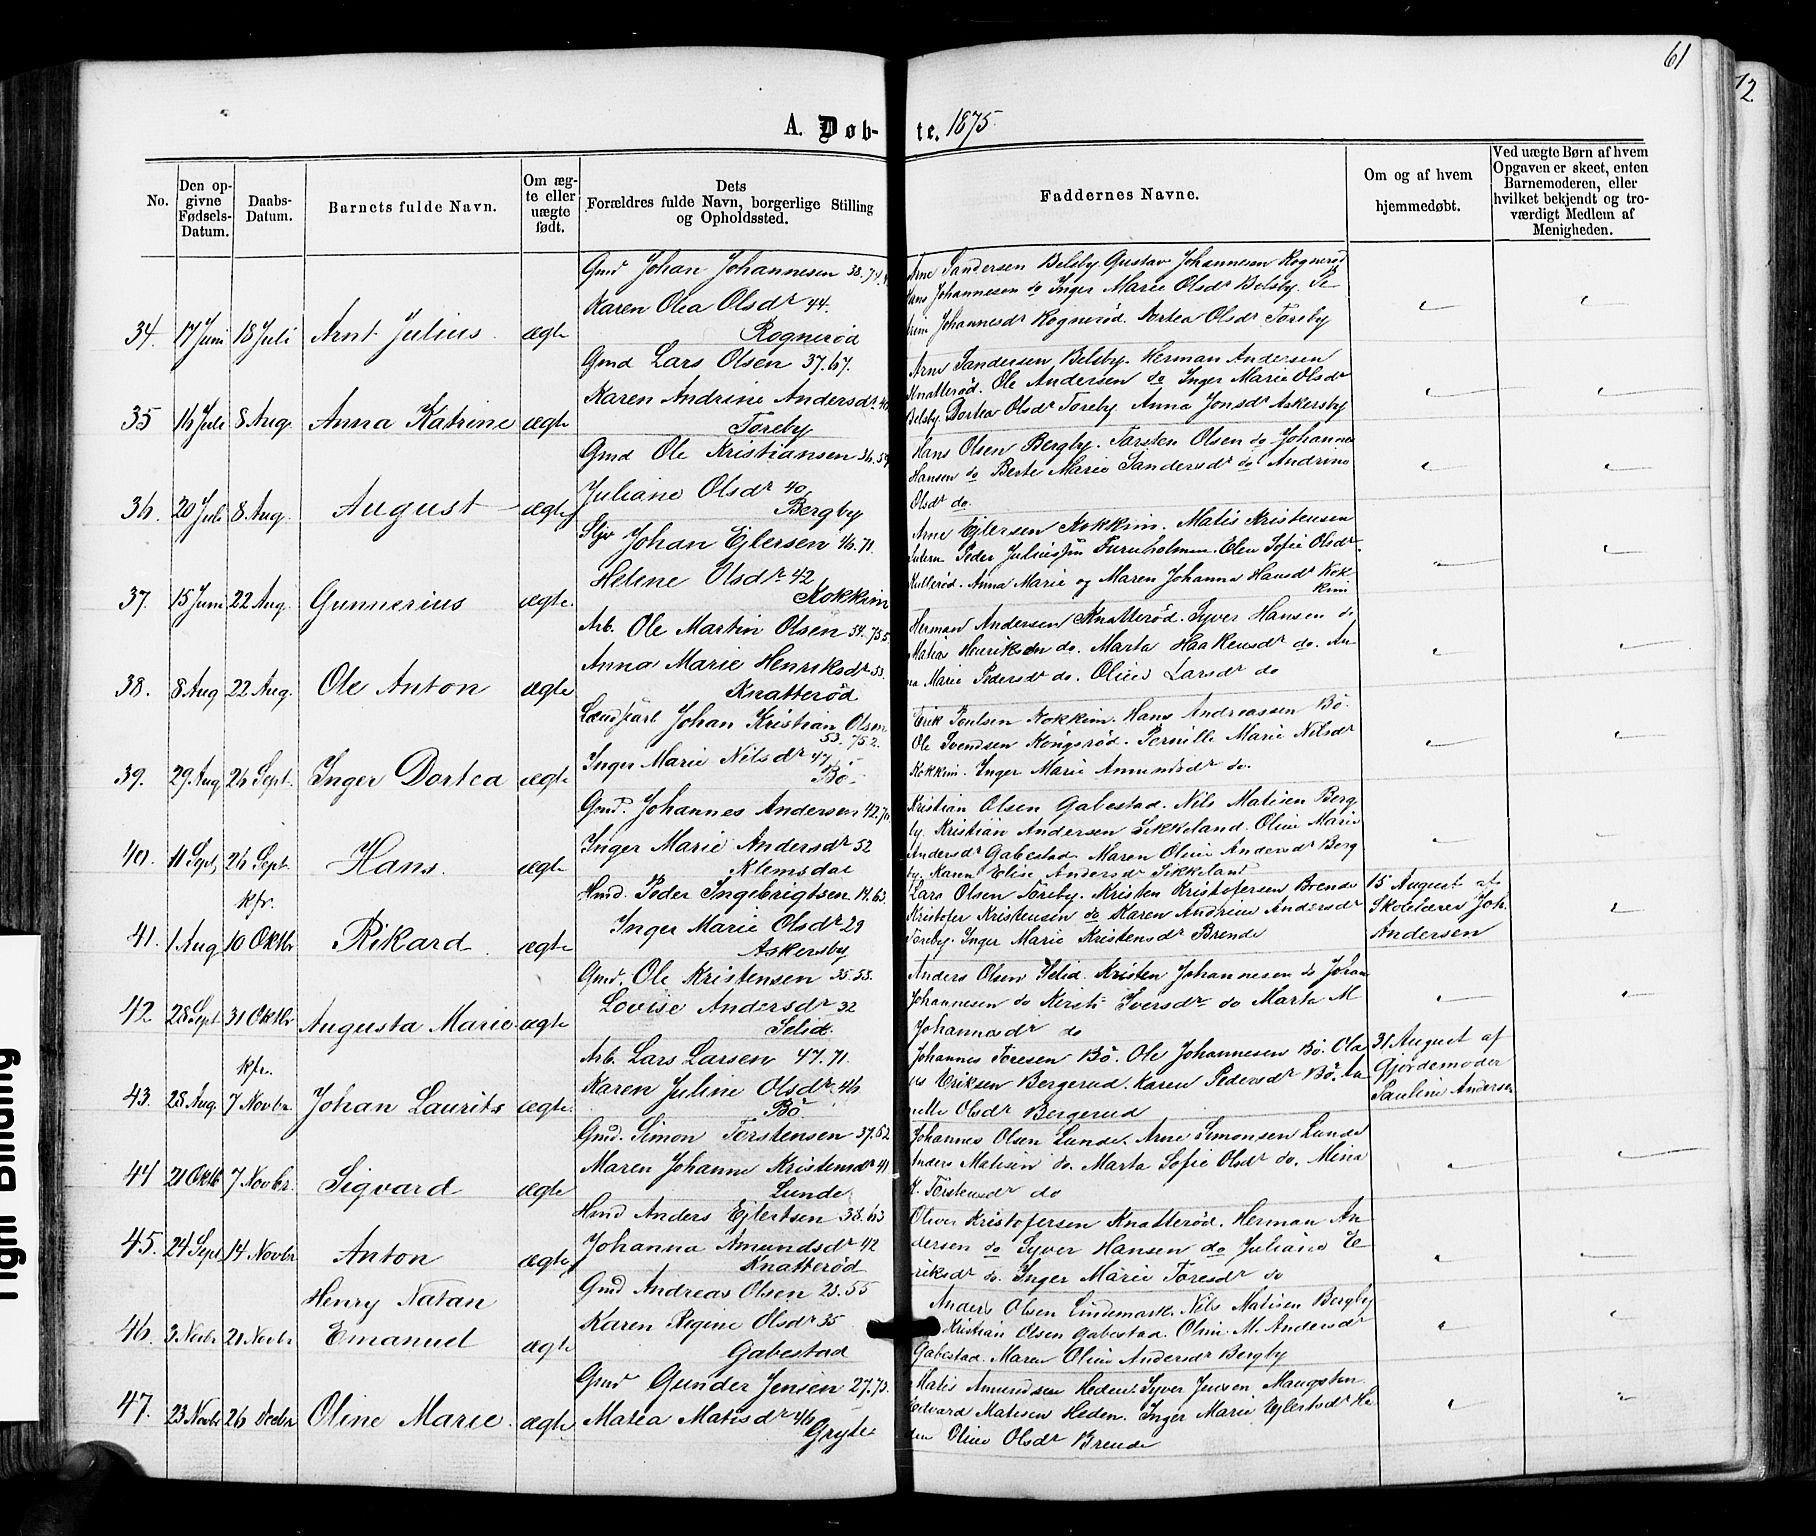 61
12
A. Døb- te. 1875.
No.
Den opgivne Fødsels-Datum.
Daabs-Datum.
Barnets fulde Navn.
Om ægte eller uægte født.
Dets Forældres fulde Navn, borgerlige Stilling og Opholdssted.
Faddernes Navne.
Om og af hvem hjemmedøbt.
Ved uægte Børn af hvem Opgaven er skeet, enten Barnemoderen, eller hvilket bekjendt og troværdigt Medlem af Menigheden.
Gmd Johan Johannesen 38.74
Karen Olea Olsdr 44.
34. 17 Juni 18 Juli Arnt Julius. ægte Rognerød
Arne Sandersen Belsby Gustav Johannesen Rognerød
Hans Johannesen do Inger Marie Olsdr Belsby. Pe
trine Johannesdr Rognerød. Dortea Olsdr Toreby
Gmd Lars Olsen 37.67.
Karen Andrine Andersdr 40
35 16 Juli 8 Aug. Anna Katrine ægte Toreby
Arne Sandersen Belsby. Herman Andersen
Knatterød. Ole Andersen do Inger Marie Olsdr
Belsby. Dortea Olsdr Toreby Anna Jonsdr Askersby
Gmd Ole Kristiansen 36.59
Juliane Olsdr 40
36. 20 Juli 8 Aug. August ægte Bergby
Hans Olsen Bergby. Torsten Olsen do Johannes
Hansen do Berte Marie Sandersdr do Andrine
Olsdr do.
Sljv Johan Ejlersen 46.71.
Helene Olsdr 42
37. 15 Juni 22 Aug. Gunnerius ægte. Kokkim
Arne Ejlersen Kokkim. Matis Kristensen
Peder Juliussen Furuholmen. Olea Sofie Olsdr
Kullerød. Anna Marie og Maren Johanna Hansdr Kok-
kim
Arb. Ole Martin Olsen 54.75.5
Anna Marie Henriksdr 53.
38. 8 Aug 22 Aug. Ole Anton ægte Knatterød
Herman Andersen Knatterød. Syver Hansen do
Matias Henriksen do. Marta Haakensdr do. An-
na Marie Pedersdr do. Oline Larsdr do
Johan Kristian Olsen
53. 75.2.
Inger Marie Nilsdr 47
39. 29. Aug 26 Sept. Inger Dortea ægte Bö
Erik Poulsen Kokkim. Hans Andreassen Bö.
Ole Svendsen Kongsrød. Pernille Marie Nilsdr
Kokkim. Inger Marie Amundsdr do.
Gmd. Johannes Andersen 42.70
Inger Marie Andersdr 52
40. 11 Sept, 26 Sept. Hans. ægte Klemsdal
Kristian Olsen Gabestad. Nils Matisen Berg-
by. Kristian Andersen Sikkeland. Oline Marie
Andersdr Gabestad. Maren Oline Andersdr Berg
by. Karen Elise Andersdr Sikkeland
Hmd. Peder Ingebrigtsen 14.63.
Inger Marie Olsdr 29
kfr.
41. 1 Aug 10 Oktbr Rikard. ægte Askersby
Lars Olsen Toreby. Kristen Kristofersen Brende
Kristofer Kristensen do Karen Andrine Andersdr
Toreby. Inger Marie Kristensdr Brende
15 August af
Skolelærer Joh.
Andersen
Gmd. Ole Kristensen 35.58.
Lovise Andersdr 32
42. 28 Sept 31 Oktbr Augusta Marie. ægte Selid.
Anders Olsen Selid. Kristen Johannesen do Johan
Johannesen do Kersti Iversdr do Marta M
Johannesdr do
Arb. Lars Larsen 47.71.
Karen Juline Olsdr. 46
kfr.
43. 28 Aug. 7 Novbr. Johan Laurits ægte. Bö
Johannes Toresen Bö. Ole Johannesen Bö. Ola
us Eriksen Bergerud. Karen Pedersdr Bö. An-
nette Olsdr Bergerud
31 August af
Gjordemoder
Pauline Andersen
Gmd. Simon Torstensen 37.62
Maren Johanne Kristensdr 41
44 21 Oktb. 7 Novbr. Sigvard ægte Lunde
Johannes Olsen Lunde. Arne Simonsen Lunde
Anders Matisen do. Marta Sofie Olsdr do. Mina
K. Torstensdr do
Hmd Anders Ejlertsen 38.63
Johanna Amundsdr 42
45. 24 Sept 14 Novbr Anton ægte Knatterød
Oliver Kristofersen Knatterød. Herman An-
dersen do Syver Hansen do Juliane E-
riksdr do. Inger Marie Toresdr do
Gmd Andreas Olsen 25.55
Karen Regine Olsdr 35
Henry Natan
46. 3 Novbr. 21 Novbr. Emanuel ægte Gabestad
Anders Olsen Lindemark. Nils Matisen Bergby
Kristian Olsen Gabestad. Oline M. Andersdr
Gabestad. Maren Oline Andersdr Bergby
Gmd Gunder Jensen 27.73.
47. 23 Novbr 26 Decbr Oline Marie. ægte Maria Matisdr 46
Gryte.
Matis Amundsen Heden. Syver Jensen Maugsten
Edvard Matisen Heden. Inger Marie Ejlertsdr He
den Oline Olsdr Brende
Tight Binding